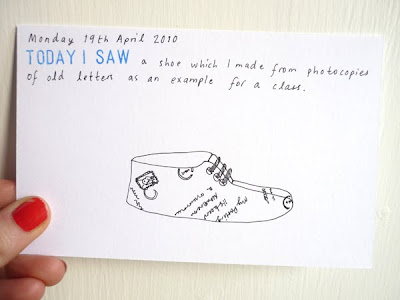 Monday 19th April 2010
TODAY I SAW a shoe which I made from photocopies
of old letters as an example for a class.